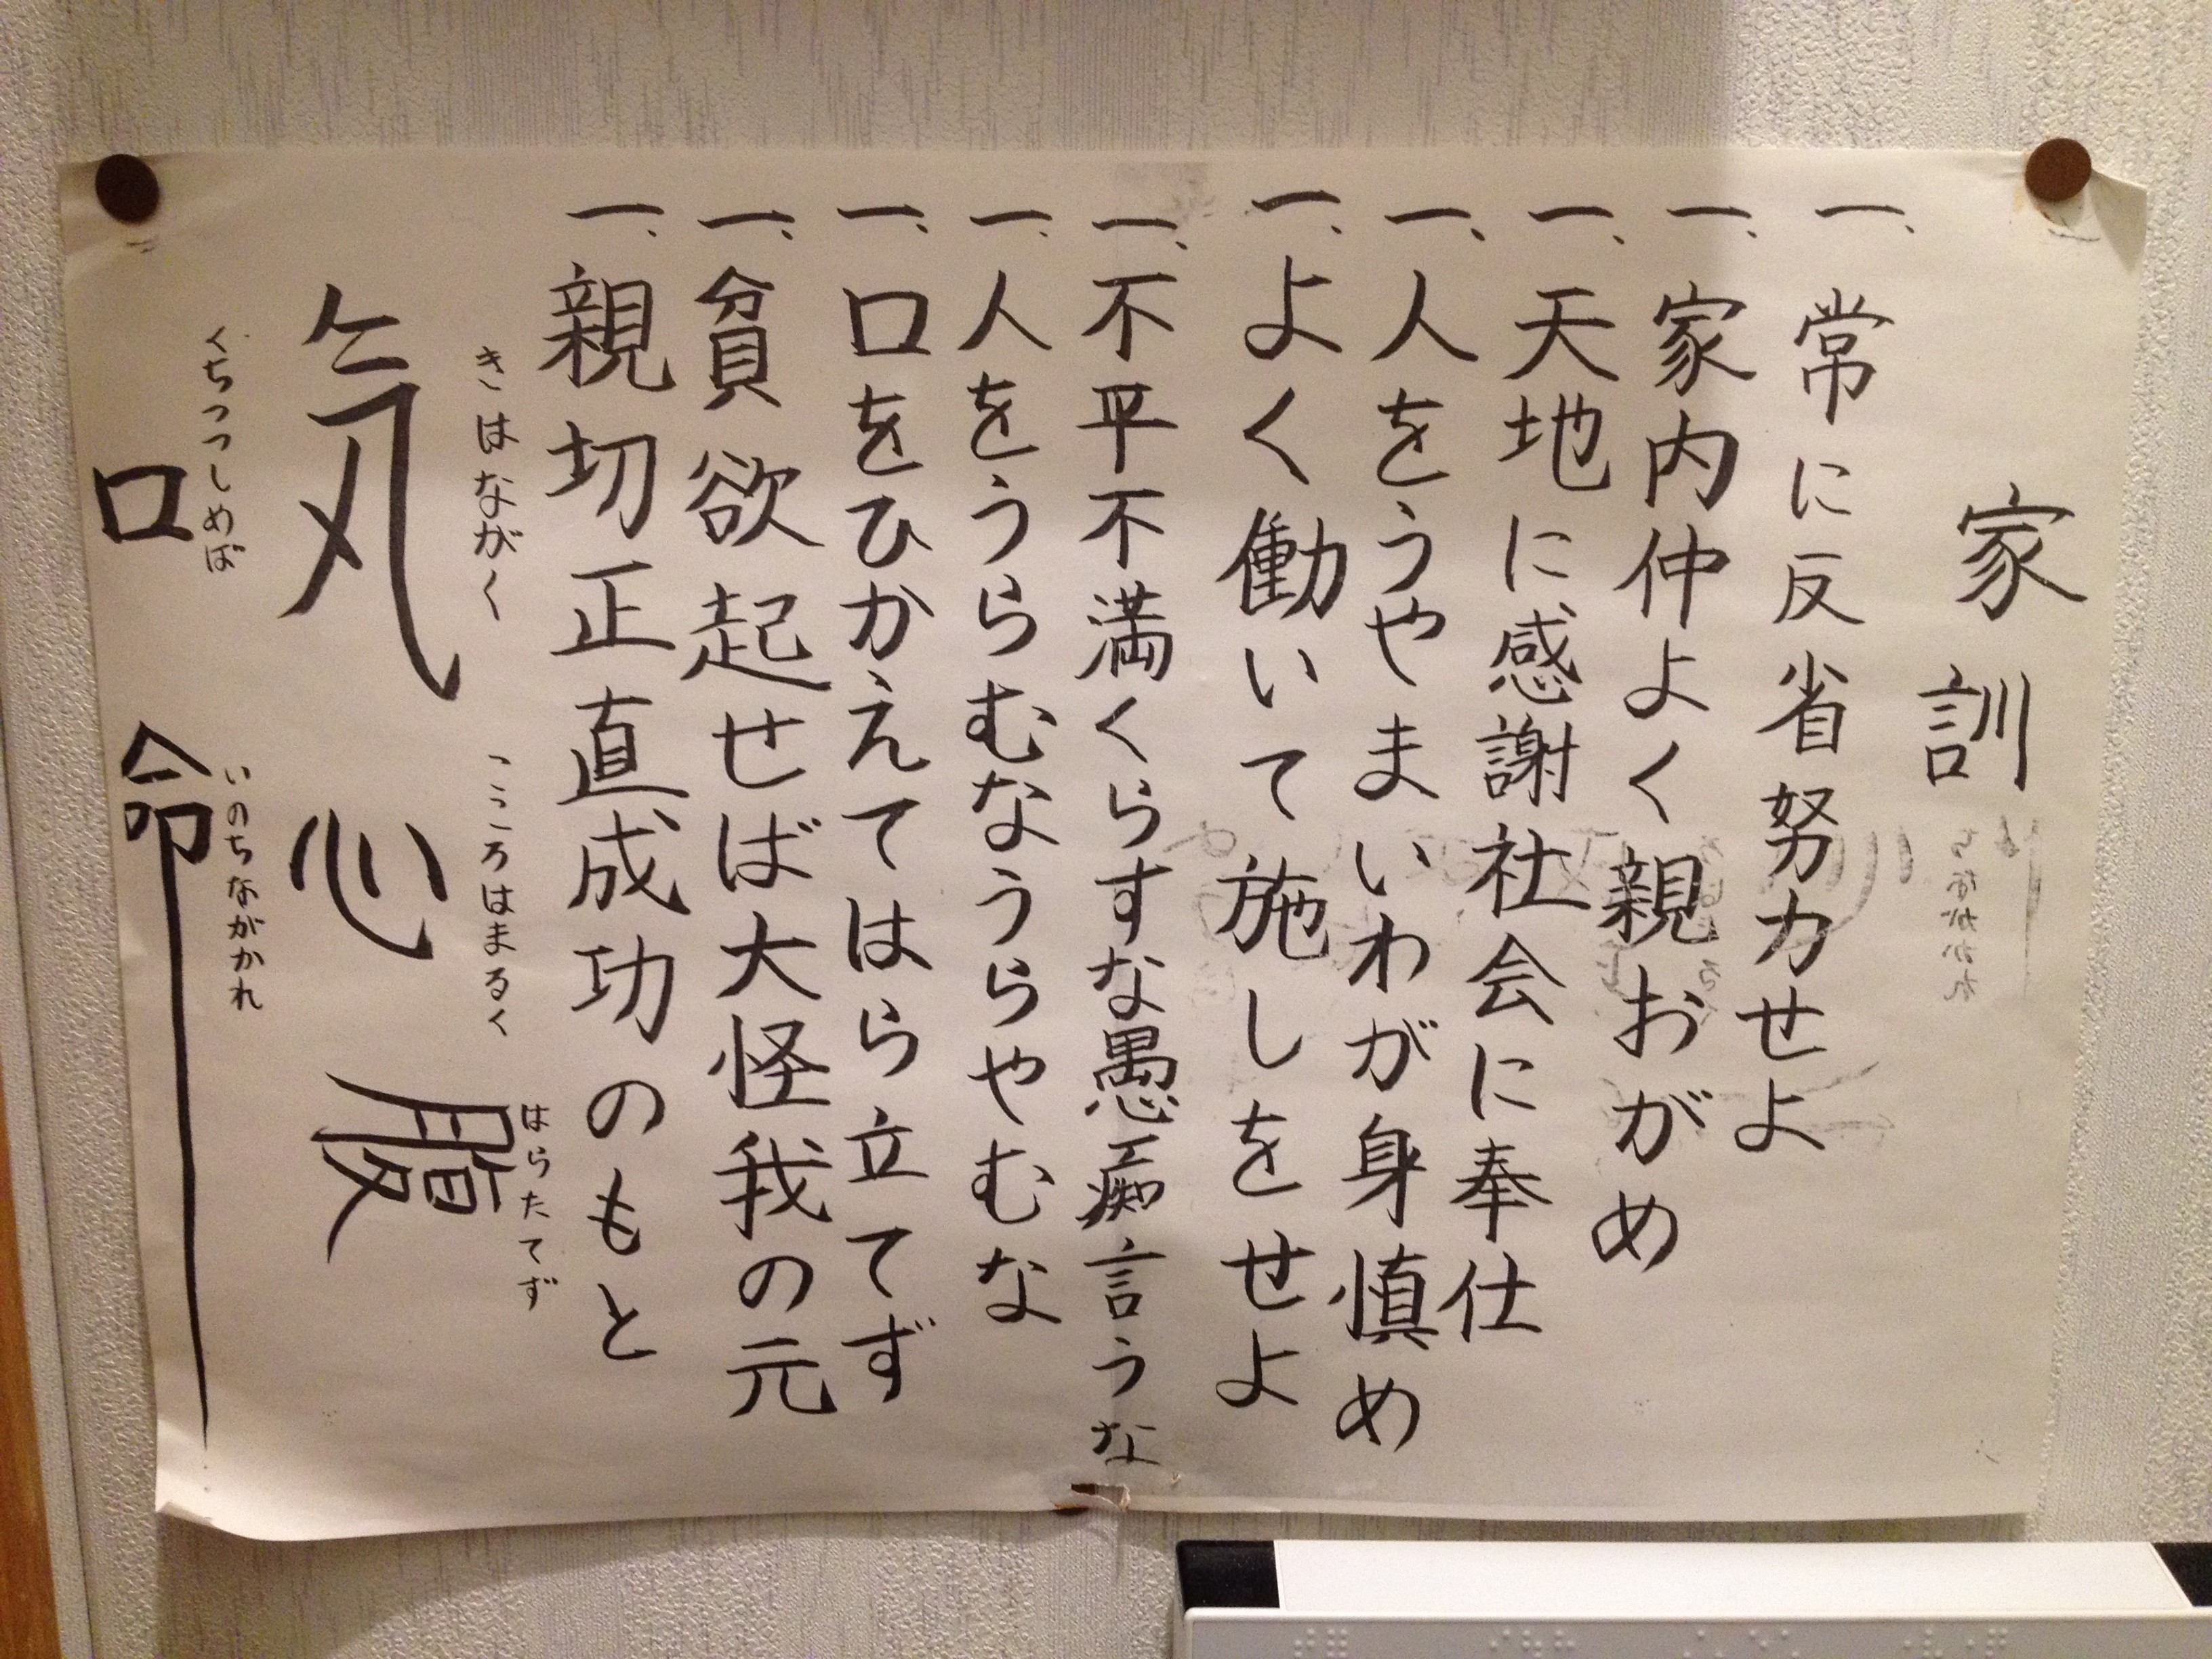 家訓
一、常に反省努力せよ
一、家内仲よく親おがめ
一、天地に感謝社会に奉仕
一、人をうやまいわが身慎め
一、よく働いて施しをせよ
一、不平不満くらすな愚痴言うな
一、人をうらむなうらやむな
一、口をひかえてはら立てず
一、貧欲起せば大怪我の元
一、親切正直成功のもと
きはながく こころはまるく はらたてず
気 心 腹
くちつつしめば いのちながかれ
口 命